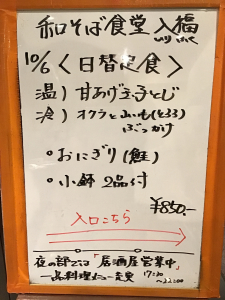 和そば食堂 入福
いり ふく
10/6 〈日替定食〉
温) 甘あげ玉子とじ
冷) オクラと山いも(とろろ)
ぶっかけ
• おにぎり(鮭)
• 小鉢 2品付
¥850-
入口こちら
夜の部では「居酒屋営業中」
一品料理メニュー充実 17:30
〜22:00